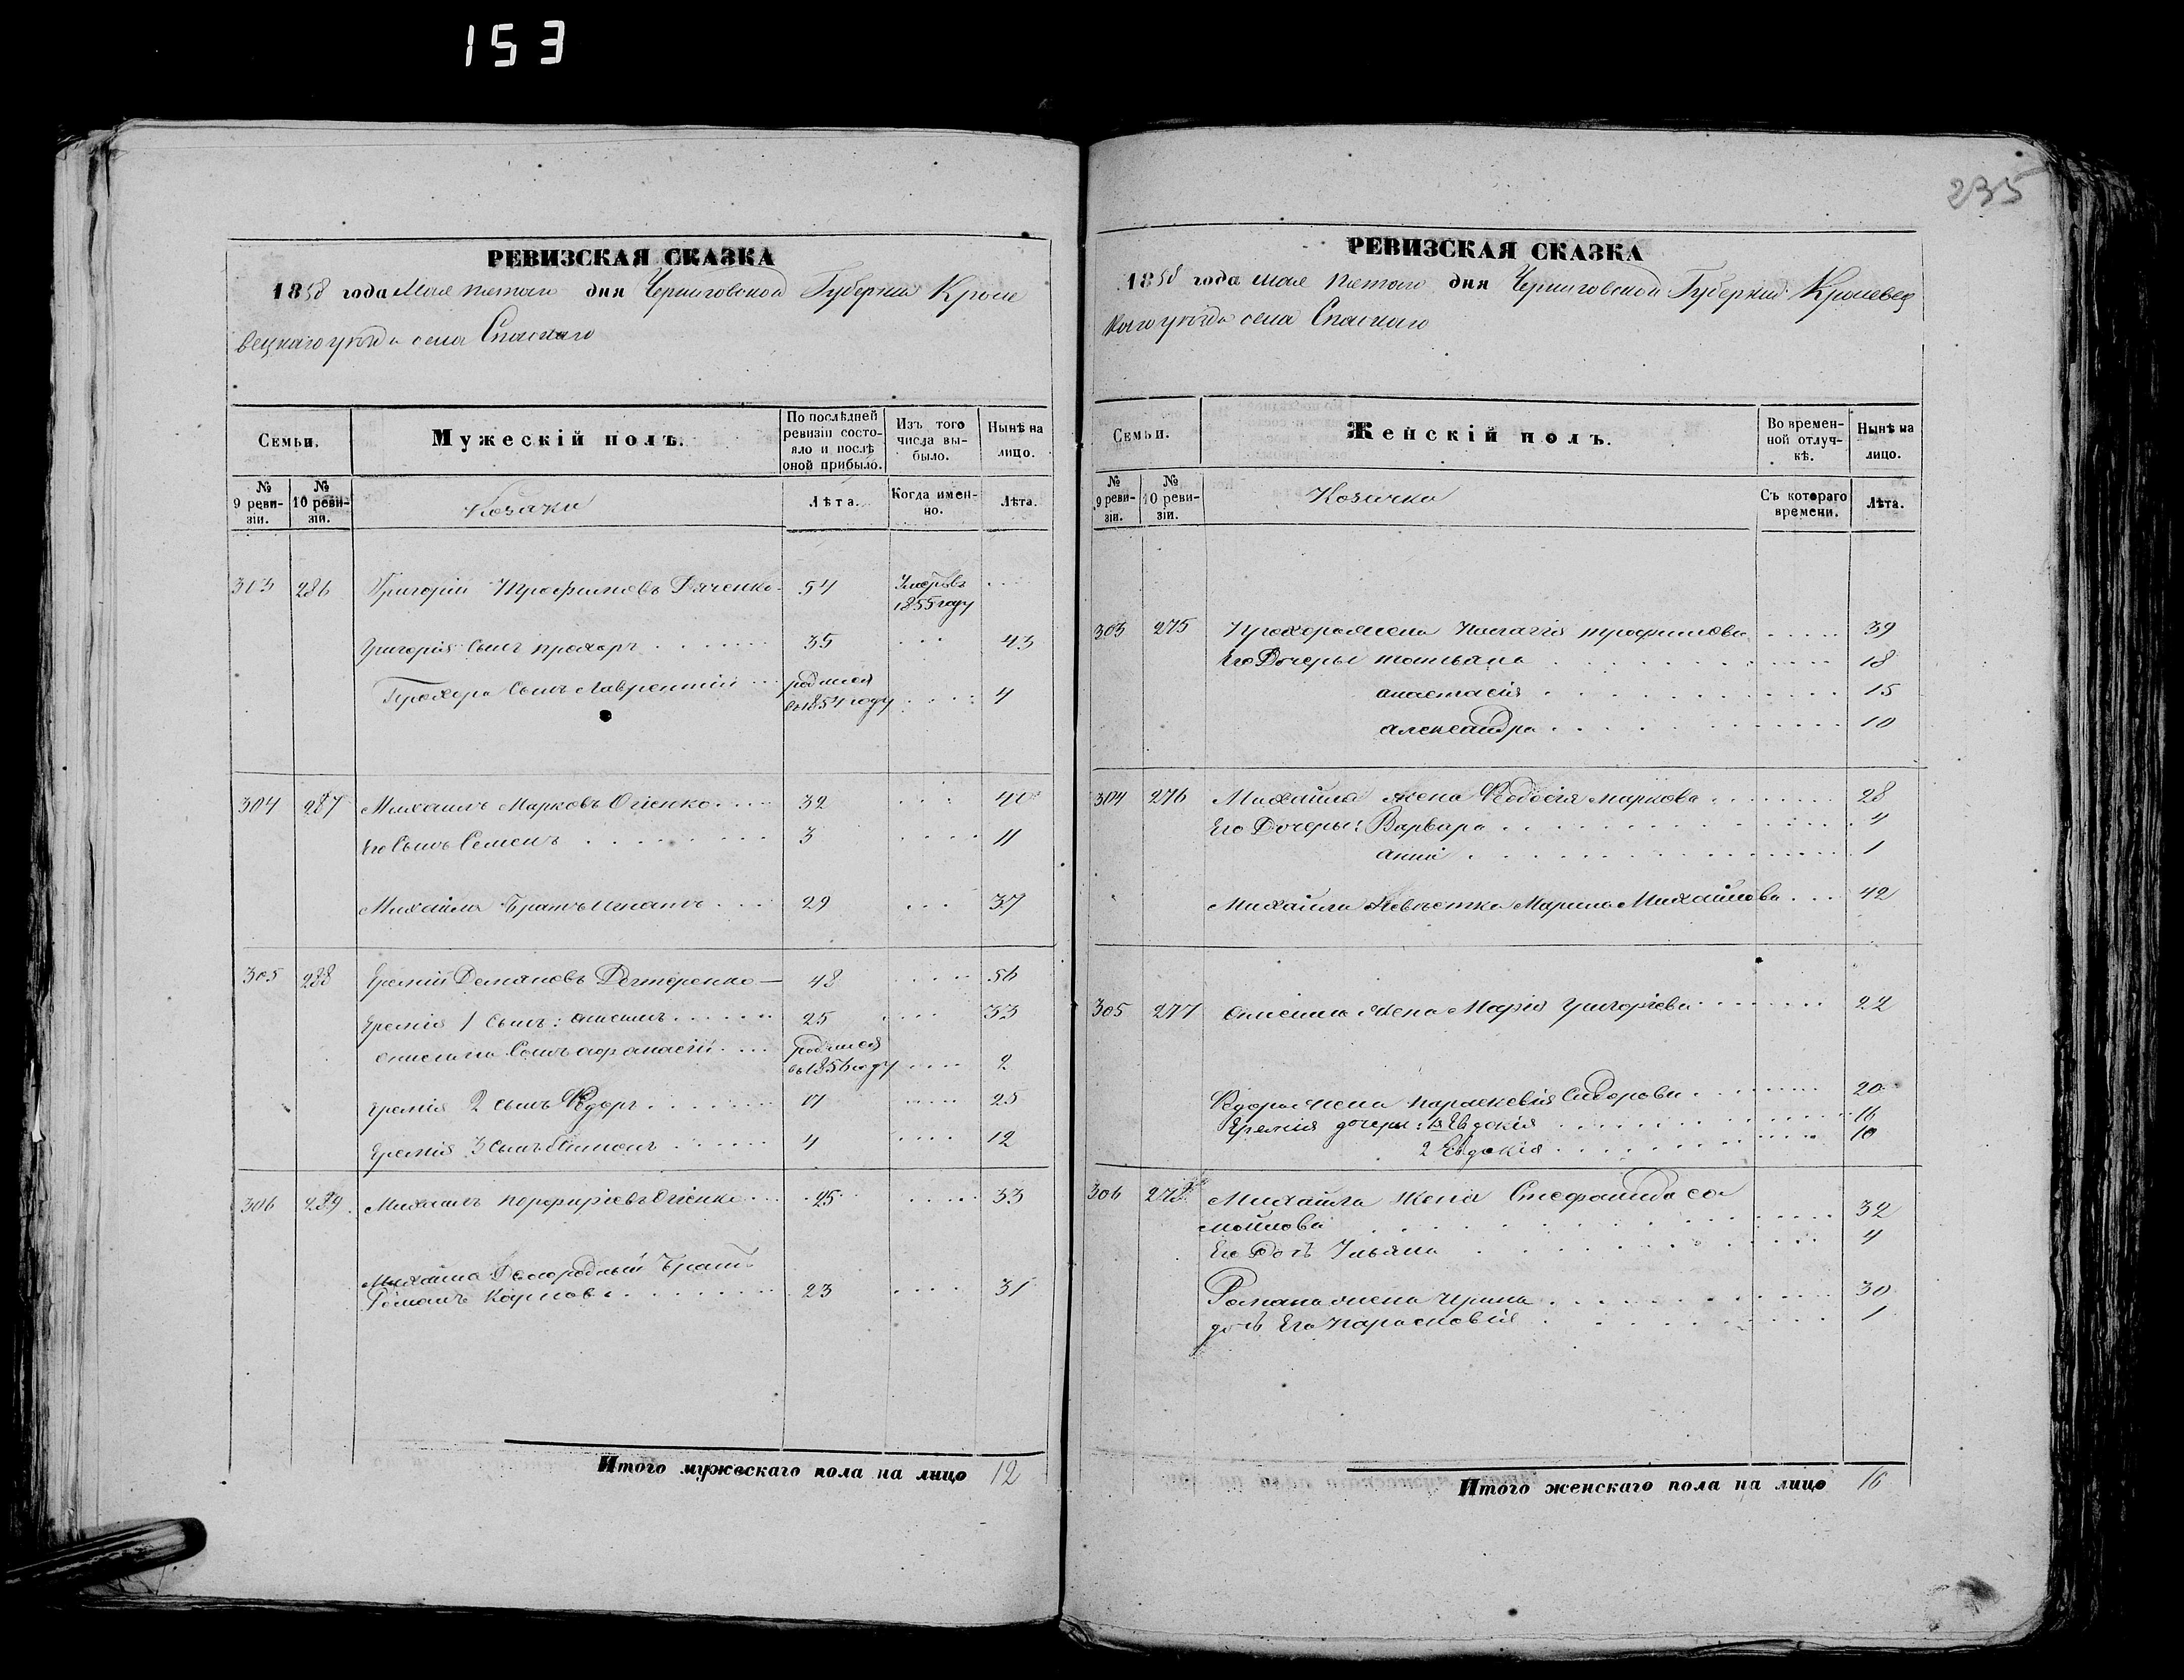 153
235
РЕВИЗСКАЯ СКАЗКА
1858 года Мая пятого дня Черниговской Губернии Кроле
вецкаго уѣзда села Спаскаго
Семьи.
Мужескій полъ.
По послѣдней ревизіи состояло и послѣ оной прибыло.
Изъ того числа выбыло.
Нынѣ на лицо.
№ 9 ревизіи.
№ 10 ревизіи.
Козаки
Лѣта.
Когда именно.
Лѣта.
303 286 Григорій Трофимовъ Дяченко 54 Умеръ въ 1855 году
Григорія Сынъ прохоръ 35 43
Прохора Сынъ Лаврентій родился въ 1854 году 4
304 287 Михаилъ Марковъ Огіенко 32 40
Его Сынъ Семенъ 3 11
Михаила Братъ Игнатъ 29 37
305 288 Еремій Демяновъ Дегтеренко 48 56
Еремія 1 Сынъ: Анисимъ 25 33
Анисима Сынъ афанасій родился въ 1856 году 2
Еремія 2 сынъ Федоръ 17 25
Еремія 3 Сынъ 4 12
306 289 Михаилъ Порфиріевъ Огіенко 25 33
Михаила Двоюродный Братъ
Романъ Карповъ 23 31
Итого мужескаго пола на лицо 12
РЕВИЗСКАЯ СКАЗКА
1858 года мая пятого дня Черниговской Губерніи Кролевец
каго уѣзда села Спаскаго
Семьи.
Женскій полъ.
Во временной отлучкѣ.
Нынѣ на лицо.
№ 9 ревизіи.
№ 10 ревизіи.
Козачки
Съ котораго времени.
Лѣта.
303 275 Прохора жена Палагія трофимова 39
Его Дочеры татьяна 18
анастасія 15
александра 10
304 276 Михайла жена Феодосія маркова 28
Его Дочеры: Варвара 4
анна 1
Михайла Невѣстка Марина Михайлова 42
305 277 Анисима жена Марія Григоріева 22
Федора жена параскевія Сидорова 20
Еремія дочеры: 1я Евдокія 16
2 Евдокія 10
306 278 Михайла жена Стефанида Са
мойлова 32
Его Дочь Ульяна 4
Романа жена Ирина 30
дочь Его Парасковія 1
Итого женскаго пола на лицо 16